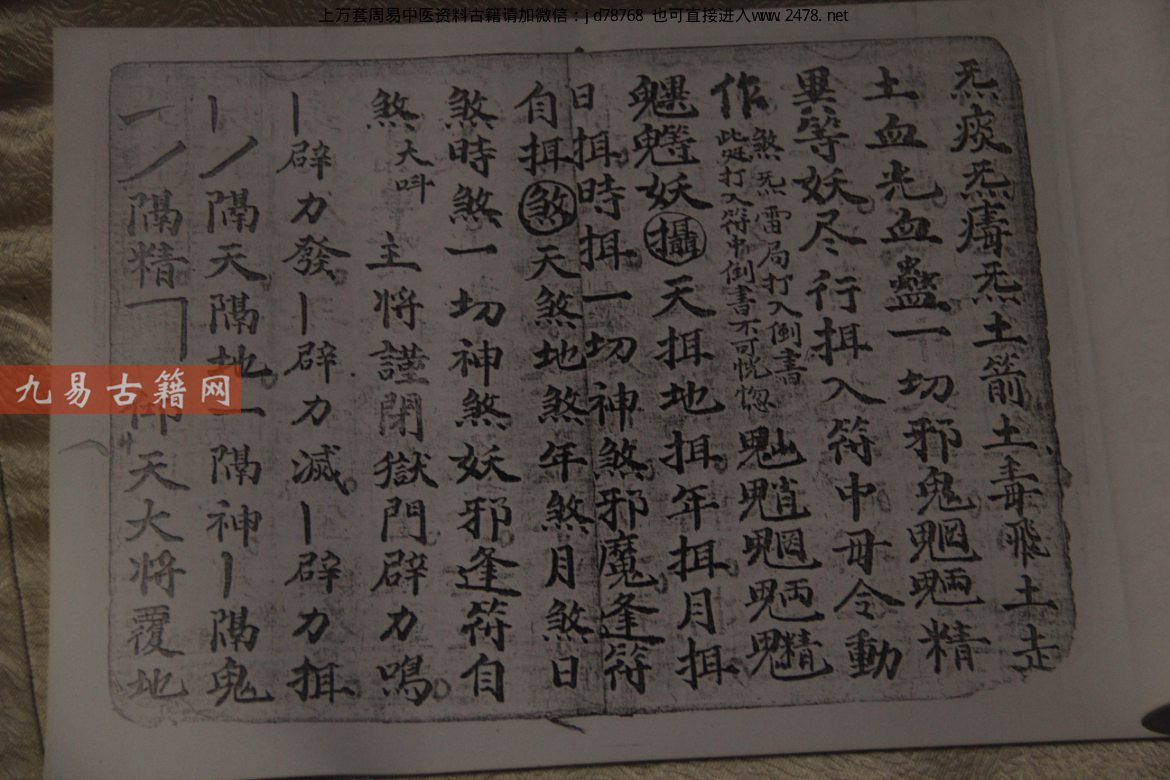 上万套周易中医资料古籍请加微信：jd78768 也可直接进入www.2478.net
炁痰炁瘴炁土箭土毒飛土走
土血光血蠱一切邪鬼魍魎精
異等妖尽行挕入符中毋令動
作 煞炁雷局打入倒書
此処打入符中倒書不可恍惚
魈魍魎
妖攝天挕地挕年挕月挕
日挕時挕一切神煞邪魔逢符
自挕煞天煞地煞年煞月煞日
煞時煞一切神煞妖邪逢符自
煞 大呌 主将謹閉獄門辟力鳴
丨辟力發丨辟力滅丨辟力挕
丨丿隔天隔地一隔神丨隔鬼
一丿隔精 天大将覆地
九易古籍网